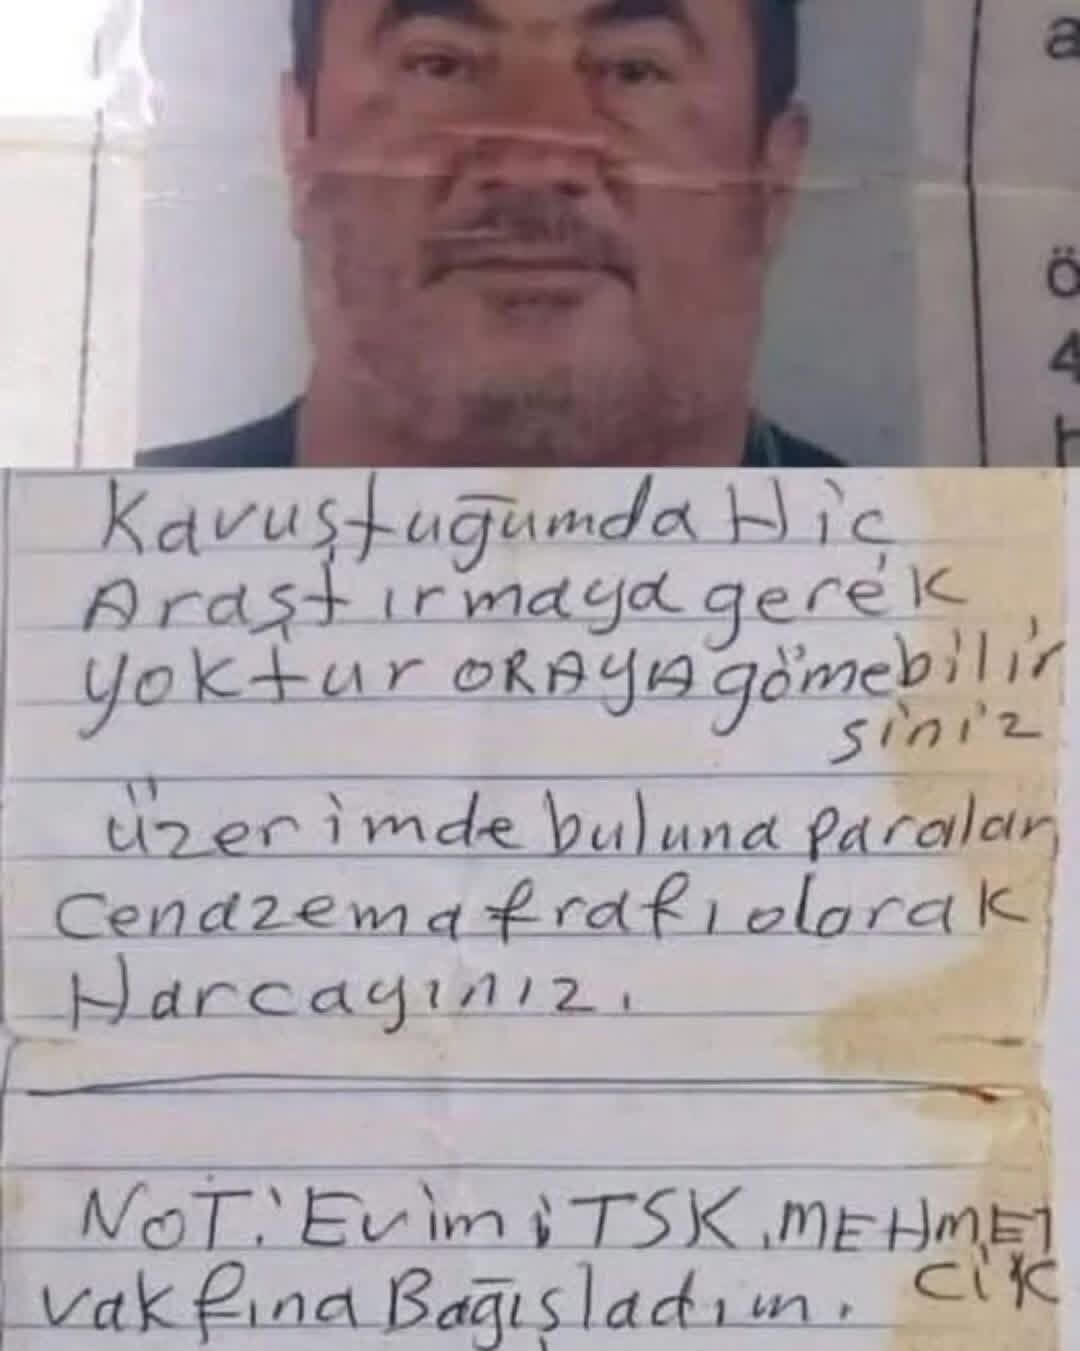 a
ö
4
Kavuştuğumda Hiç
Araştırmaya gerek
yoktur ORAYA gömebilir
siniz
üzerimde buluna paralar
Cenazema frafı olarak
Harcayınız.
NOT: Evimi TSK. MEHMET
CİK
vakfına Bağışladım.